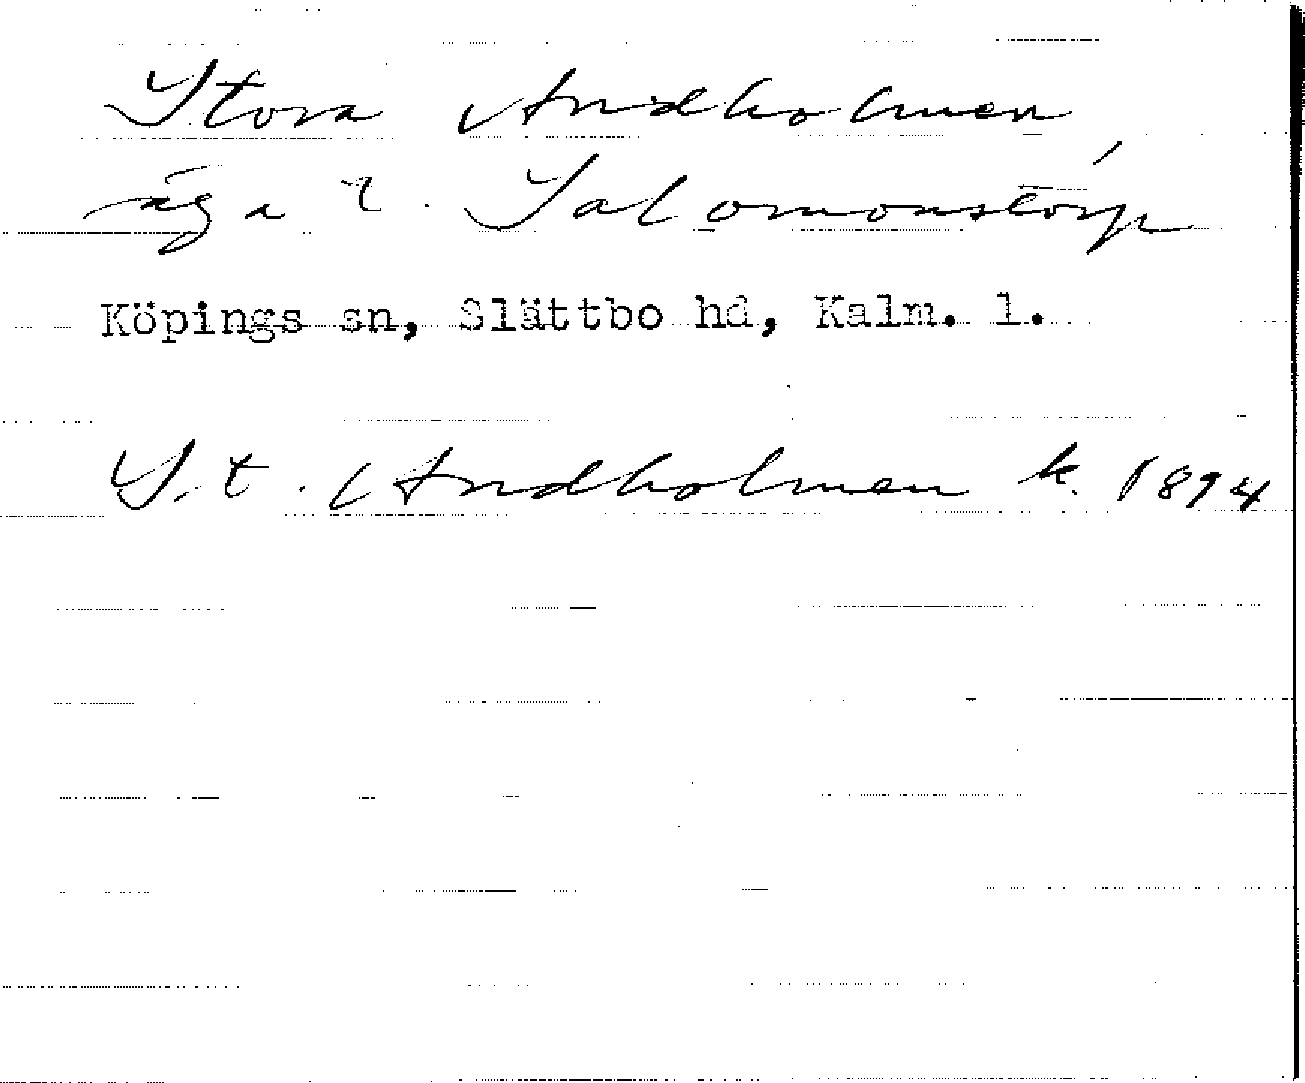 Stora Andholmen
äga t. Salomonstorp
Köpings sn, Slättbo hd, Kalm. l.
St. Andholmen k. 1894